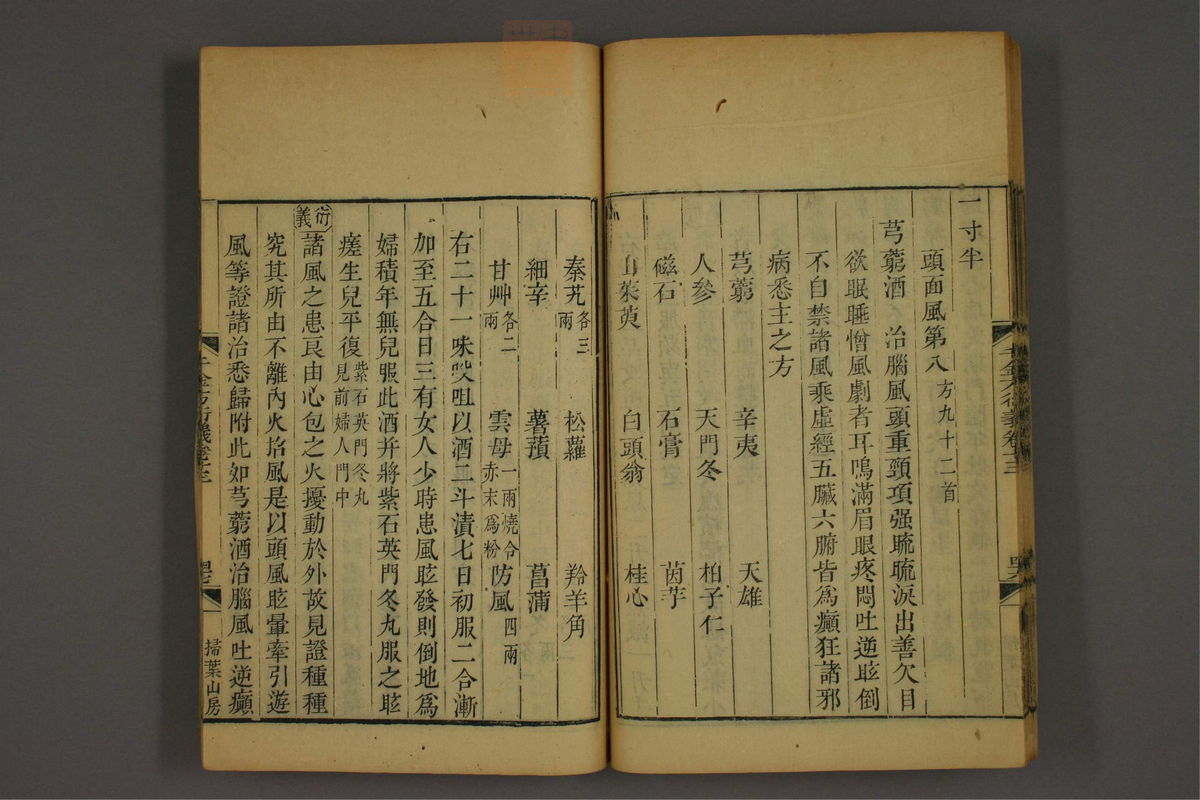 一寸半
頭面風第八 方九十二首
芎藭酒 治腦風頭重頸項强䀮䀮淚出善欠目
欲眠睡憎風劇者耳鳴滿眉眼疼悶吐逆眩倒
不自禁諸風乘虛經五臟六腑皆爲癲狂諸邪
病悉主之方
芎藭 辛夷 天雄
人參 天門冬 柏子仁
磁石 石膏 茵芋
山茱萸 白頭翁 桂心
秦艽各三兩 松蘿 羚羊角
細辛 薯蕷 菖蒲
甘艸各二兩 雲母一兩燒令赤末爲粉 防風四兩
右二十一味㕮咀以酒二斗漬七日初服二合漸
加至五合日三有女人少時患風眩發則倒地爲
婦積年無兒服此酒并將紫石英門冬丸服之眩
瘥生兒平復紫石英門冬丸見前婦人門中
衍義
諸風之患良由心包之火擾動於外故見證種種
究其所由不離內火招風是以頭風眩暈牽引遊
風等證諸治悉歸附此如芎藭酒治腦風吐逆癲
千金方衍義卷十三
掃葉山房